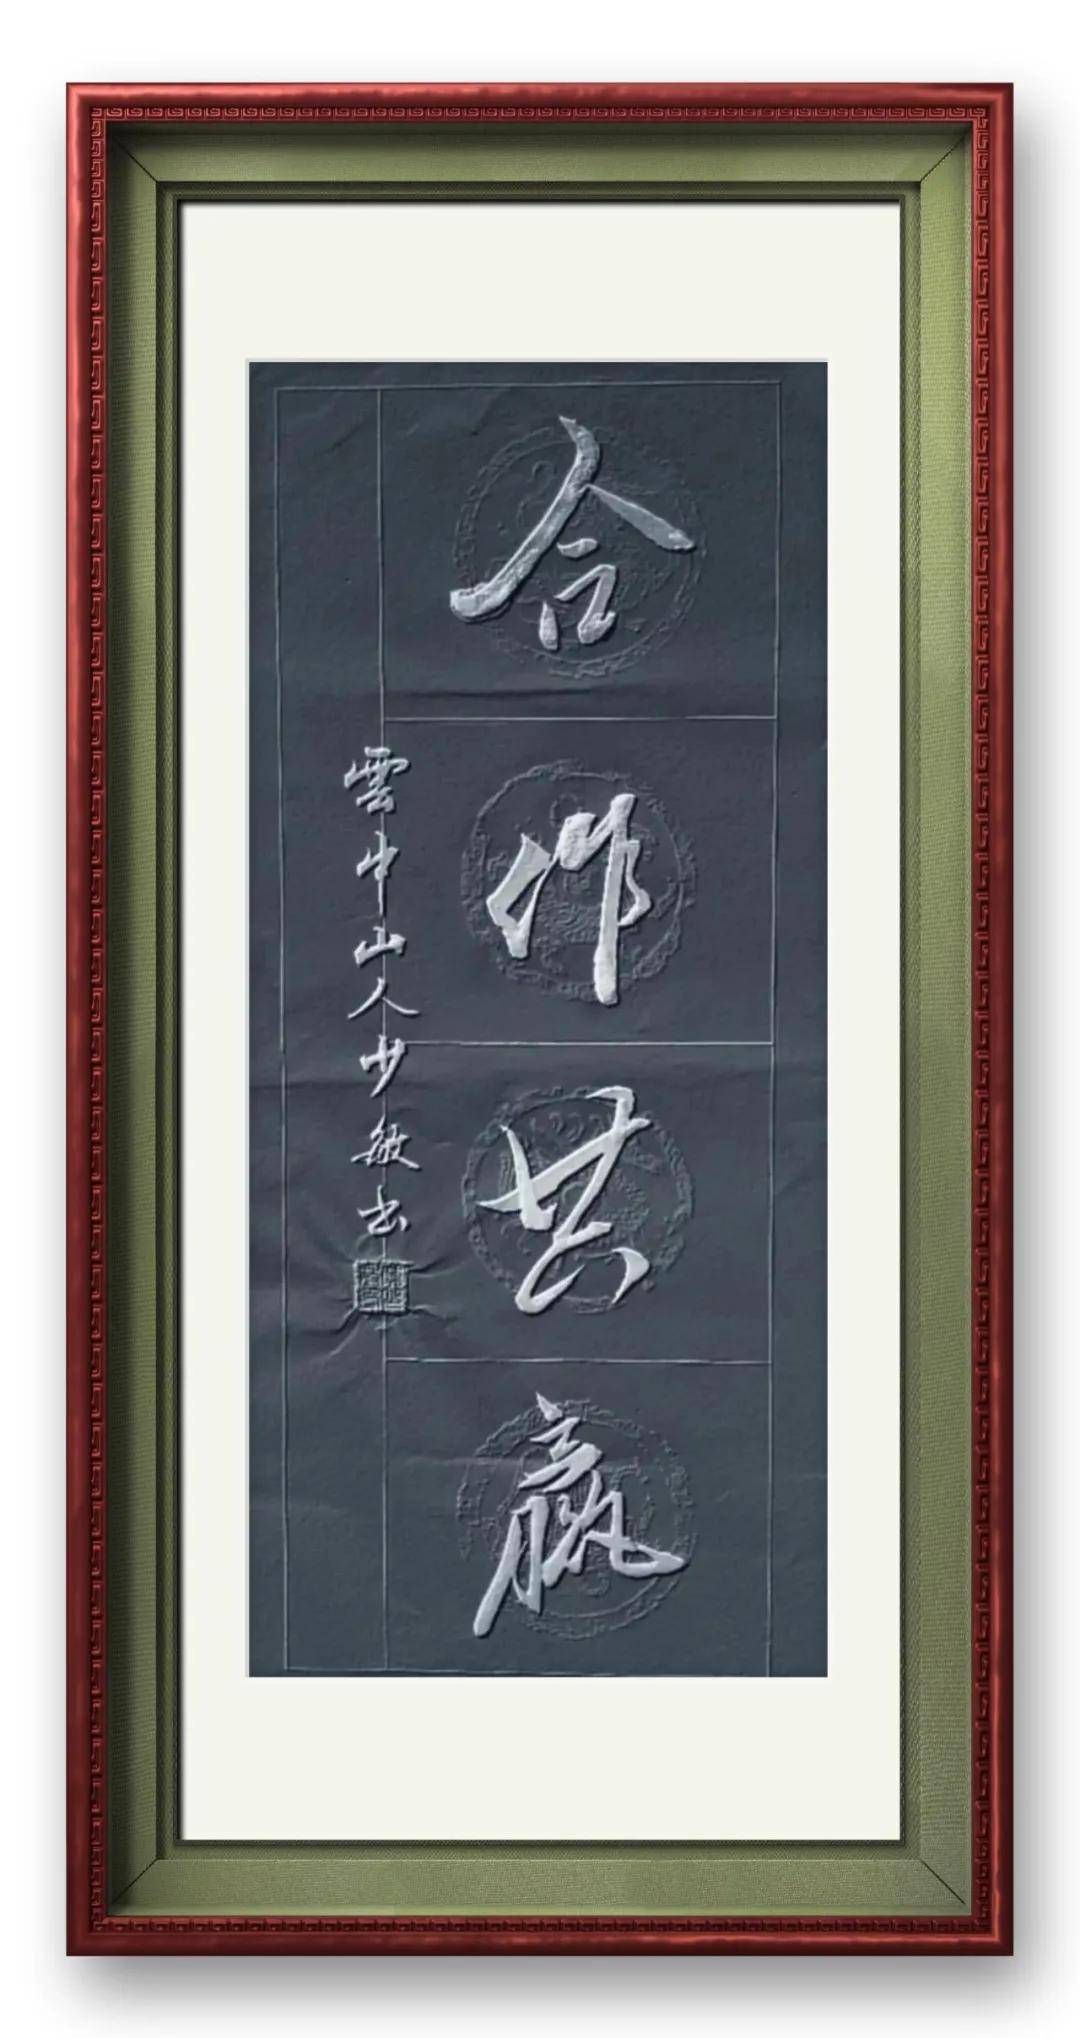 合作共赢
雲中山人少敏书